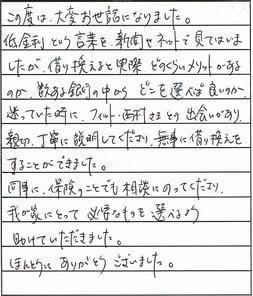 この度は、大変お世話になりました。
低金利という言葉を、新聞やネットで見てはいま
したが、借り換えると実際どのくらいメリットがある
のか、数ある銀行の中からどこを選べば良いか、
迷っていた時に、フィット・西村さまとの出会いがあり、
親切、丁寧に説明してくださり、無事に借り換えを
することができました。
同時に、保険のことでも相談にのってくださり、
我が家にとって必要なものを選べるよう
助けていただきました。
ほんとうにありがとうございました。